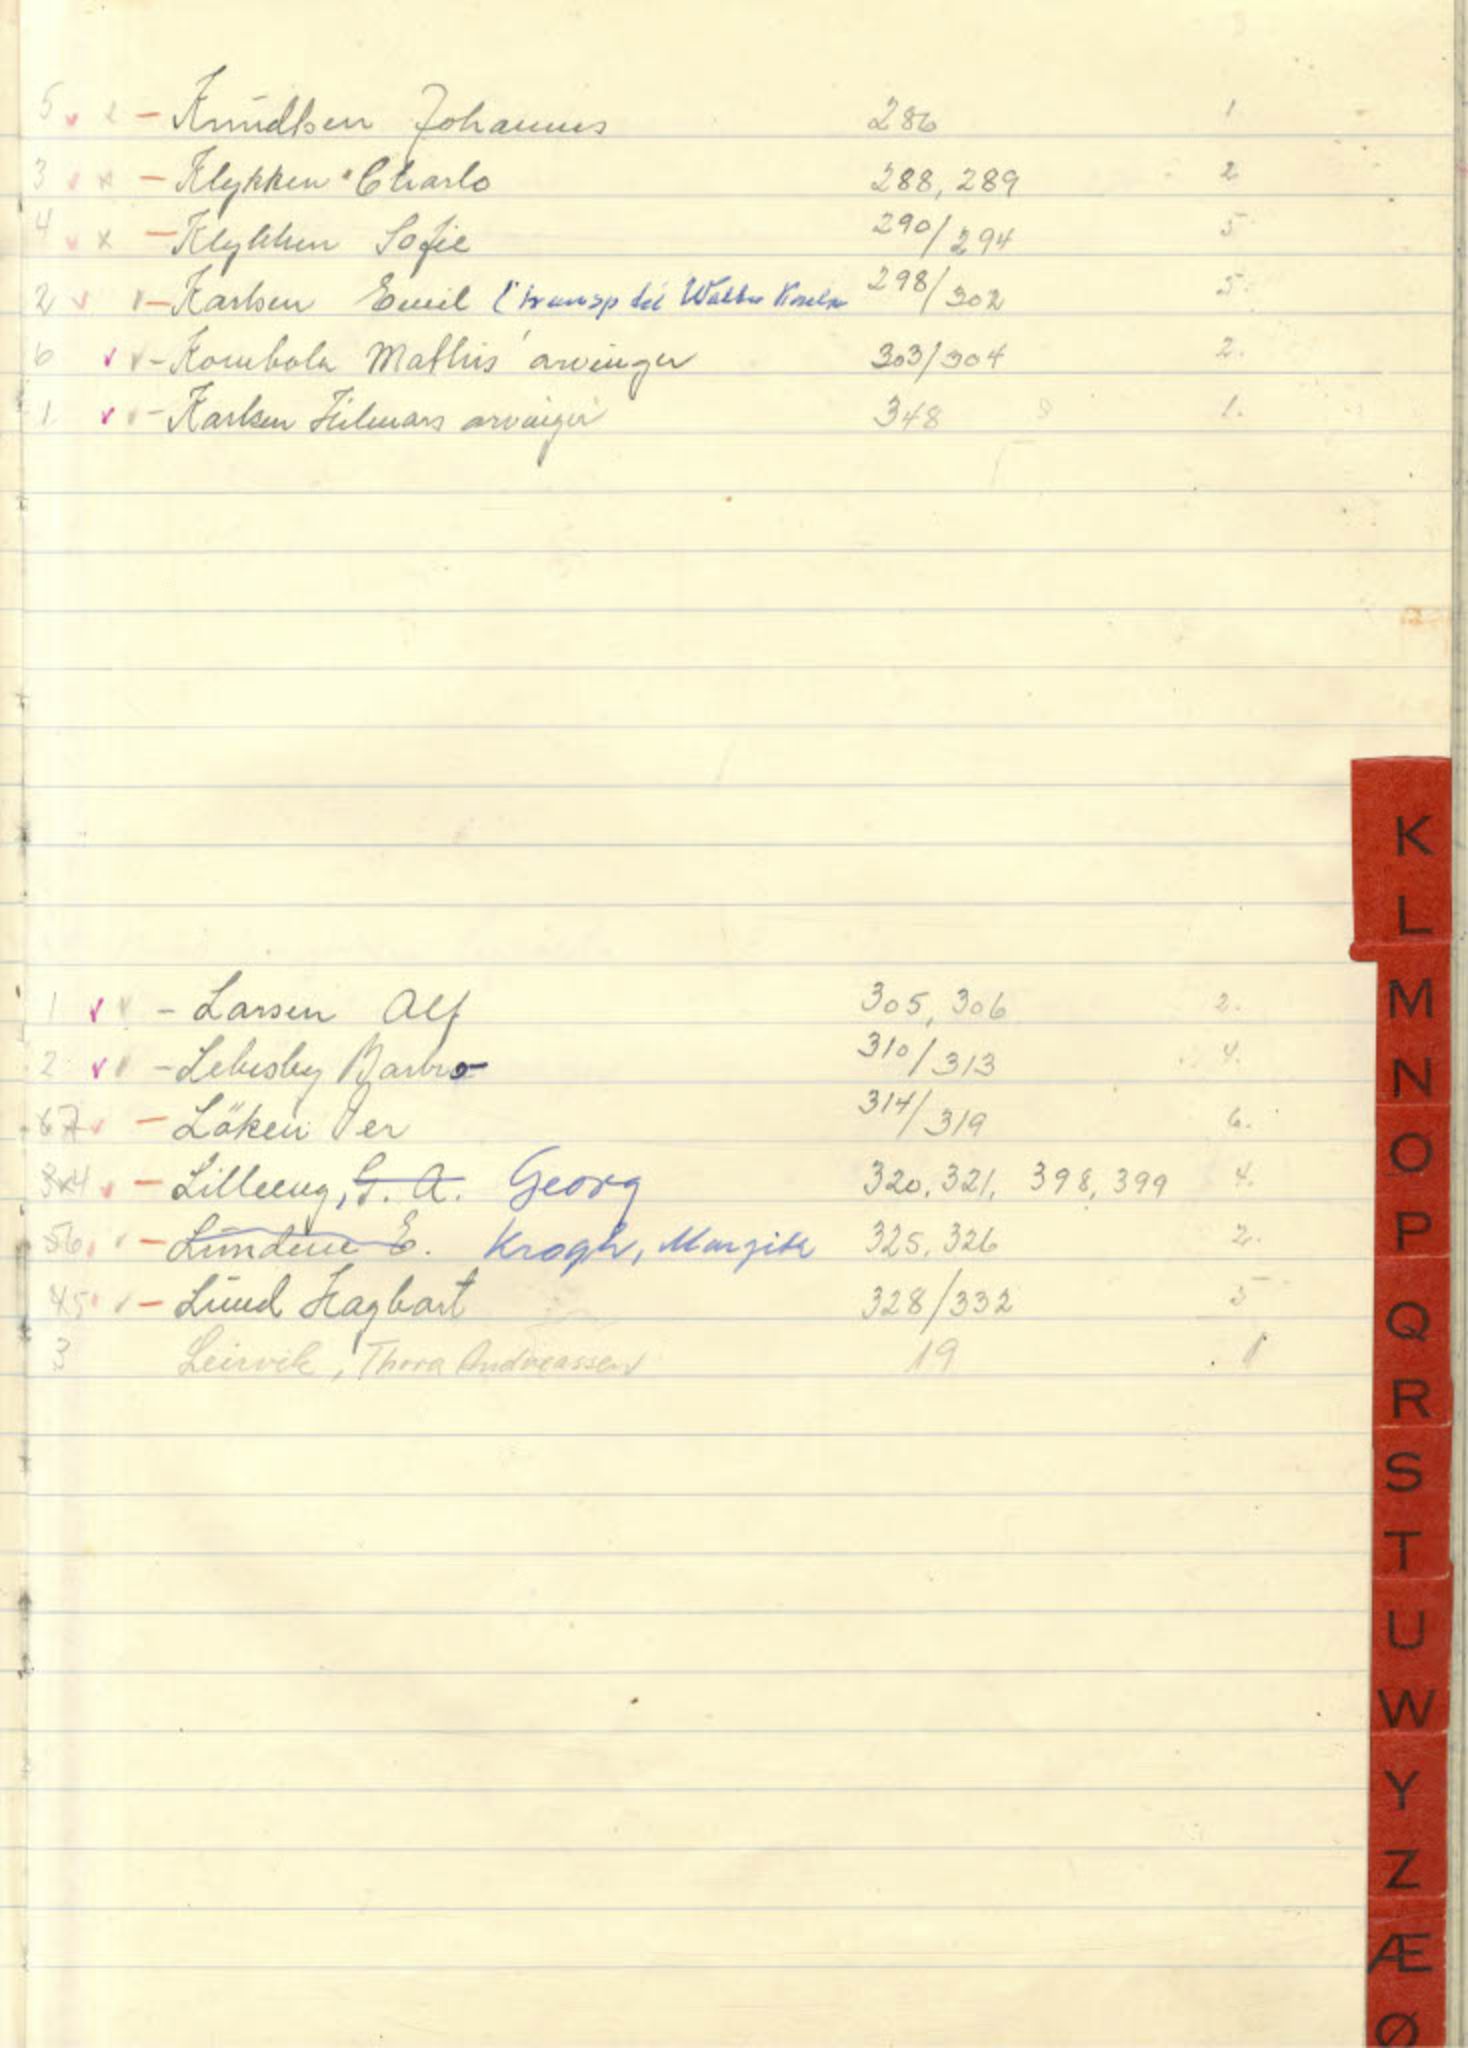 5 Knudtsen Johannes 286 1
3 Klykken Charlo 288, 289 2
4 x Klykken Sofie 290/294 5
2 Karlsen Emil (transp til 298/302 5.
6 Mathis arvinger 303/304 2.
1 Karlsen Hilmars arvinger 348 1.
K
L
1 Larsen Alf 305, 306 2.
2 Lebesby Barbro 310/313 4.
67 Löken Per 314/319 6.
4 Lilleeng, G. A. Georg 320, 321, 398, 399 4.
56 Lundene E. Krogh, Margith 325, 326 2.
45 Lund Hagbart 328/332 5
3 Leirvik, Thora Andreassen 19 1
M
N
O
P
Q
R
S
T
U
W
Y
Z
Æ
Ø